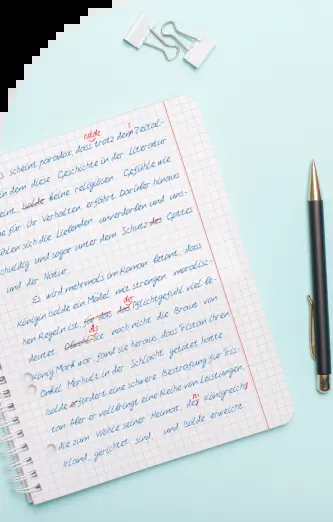 Isolde !
s scheint paradox, dass trotz dem Zeital-
in dem diese Geschichte in der Literatur
eint, Isolde keine religiösen Gefühle wie
e für Ihr Verhalten erfährt. Darüber hinaus
hlen sich die Liebenden unverdorben und uns-
chuldig und sogar unter dem Schutz des Gottes
und der Natur.
Es wird mehrmals im Roman betont, dass
Königin Isolde ein Mädel mit strengen moralisc-
der
hen Regeln ist, für die das Pflichtgefühl viel be-
Als
deutet. sie noch nicht die Braut von
König Mark war, fand sie heraus, dass Tristan ihren
Onkel Morhult in der Schlacht getötet hatte
Isolde erfordert eine schwere Bestrafung für Tris-
tan. Aber er vollbringt eine Reihe von Leistungen,
die zum Wohle seiner Heimat, des Königreichs
Irland, gerichtet sind, und Isolde erweicht